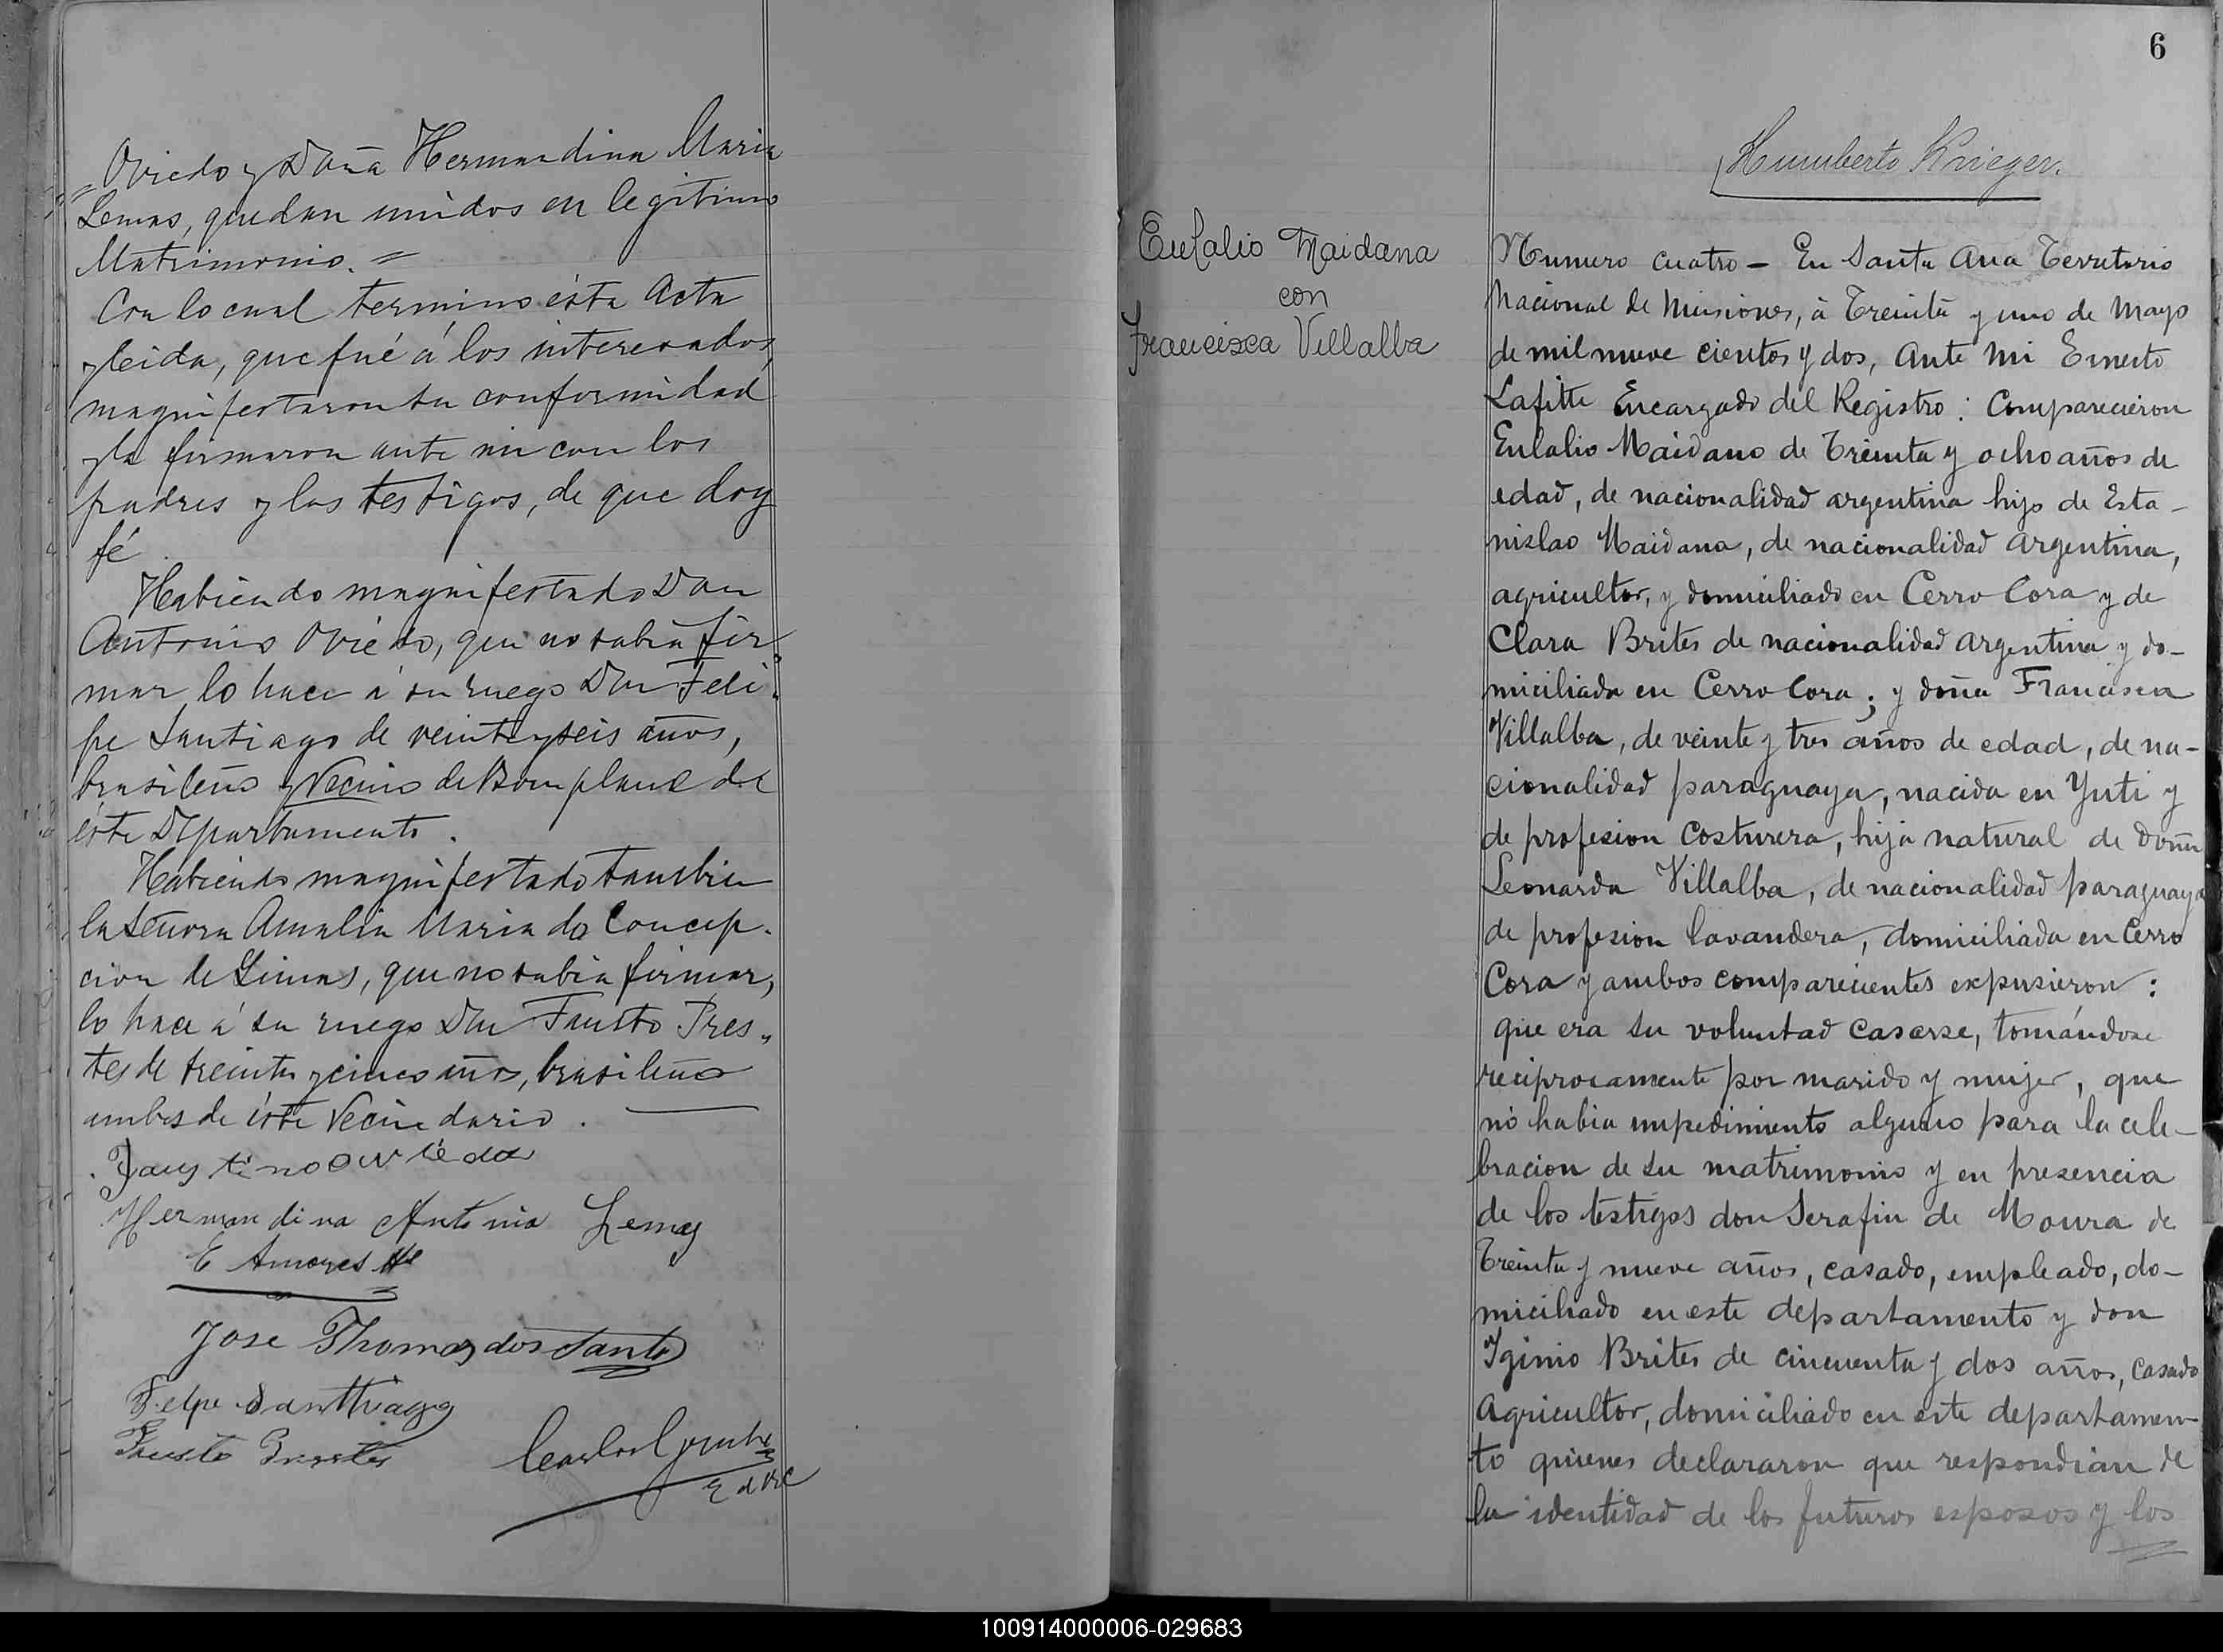 Oviedo y Doña Hermandina Maria
Lemas, quedan unidos en legitimo
Matrimonio. =
Con lo cual termino ésta Acta
y leida, que fué á los interesados,
magnifestaron su conformidad
y la firmaron ante mi con los
padres y los testigos, de que doy
fé.
Habiendo magnifestado Don
Antonio Oviedo, que no sabia fir-
mar lo hace á su ruego Don Feli-
pe Santiago de veinte y seis años,
brasileño y Vecino de Bompland de
éste Departamento.
Habiendo magnifestado tambien
la Señora Amalia Maria da Concep-
cion de Limas, que no sabia firmar,
lo hace á su ruego Don Fausto Pres-
tes de treinta y cinco años, brasileño
ambos de éste Vecindario.
Faustino Oviedo
Hermandina Antonia Lemes
E Amores
Jose Thomas dos Santos
Felipe Santthiago
Fausto Prestes
E d RC
6
Humberto Krieger.
Eulalio Maidana
con
Francisca Villalba
Numero cuatro - En Santa Ana Territorio
Nacional de Misiones, à Treinta y uno de Mayo
de mil nueve cientos y dos, Ante Mi Ernesto
Lafitte Encargado del Registro: Comparecieron
Eulalio Maidano de Treinta y ocho años de
edad, de nacionalidad argentina hijo de Esta-
nislao Maidana, de nacionalidad argentina,
agricultor, y domiciliado en Cerro Cora y de
Clara Brites de nacionalidad argentina y do-
miciliada en Cerro Cora; y doña Francisca
Villalba, de veinte y tres años de edad, de na-
cionalidad paraguaya, nacida en Yuti y
de profesion costurera, hija natural de Doña
Leonarda Villalba, de nacionalidad paraguaya
de profesion lavandera, domiciliada en Cerro
Cora y ambos comparecientes expusieron:
que era su voluntad casarse, tomándose
reciprocamente por marido y mujer, que
no habia impedimento alguno para la cele-
bracion de su matrimonio y en presencia
de los testigos don Serafin de Moura de
Treinta y nueve años, casado, empleado, do-
miciliado en este departamento y don
Iginio Brites de cincuenta y dos años, casado
Agricultor, domiciliado en este departamen-
to quienes declararon que respondian de
la identidad de los futuros esposos y los
100914000006-029683